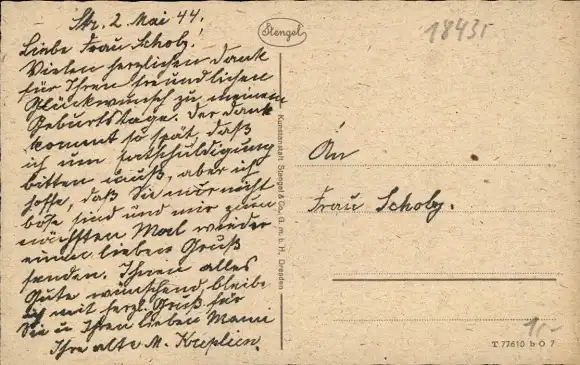 Str. 2 Mai 44.
Liebe Frau Scholz!
Vielen herzlichen Dank
für Ihren freundlichen
Glückwunsch zu meinem
Geburtstage. Der Dank
kommt so spät, daß
ich um Entschuldigung
bitten muß, aber ich
hoffe, daß Sie mir nicht
böse sind und mir zum
nächsten Mal wieder
einen lieben Gruß
senden. Ihnen alles
Gute wünschend, bleibe
ich mit herzl. Gruß für
Sie u Ihren lieben Mann
Ihre alte M. Kreplien.
Stengel
Kunstanstalt Stengel & Co., G. m. b. H., Dresden
18435
An
Frau Scholz.
1,-
T 77610 b O 7